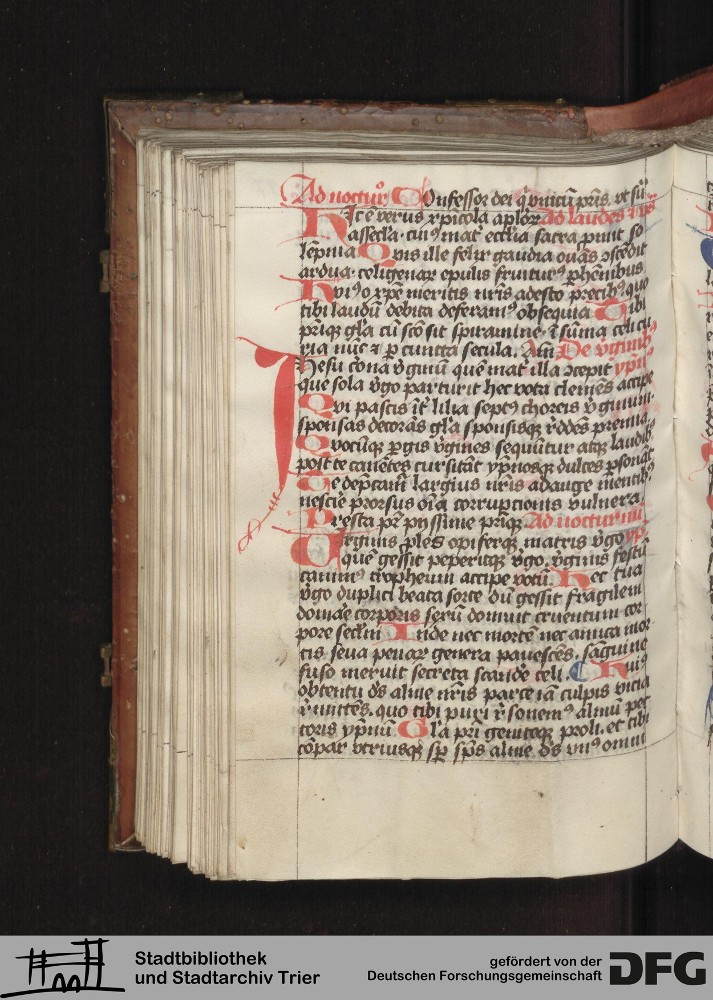 Ad noctur̄ Confessor dei q̄
Hic ē verus xp̄icola apl̄oꝝ Ad laudes
assecla · cuiꝰ mat̄ eccl̄ia sacra ꝓmit so
lēpnia Qvis ille felix gaudia ouās ꝯscēdit
ardua · celigenaꝝ epulis fruiturꝰ ꝑhēnibus
Huiꝰ o xp̄e meritis nr̄is adesto precibꝰ quo
tibi laudū debita deferamꝰ obsequia Tibi
pr̄iqꝫ gl̄a cū sc̄o sit spiramine · ī sūma celi cu
ria nūc ⁊ ꝑ cuncta secula. Am̄ De v̄ginibꝰ
Jhesu corōa v̄ginū quē mat̄ illa ꝯcepit yp̄n
que sola v̄go parturit hec vota clemēs accipe
Qvi pascis īt̄ lilia septꝰ choreis v̄ginum
sponsas decorās gl̄a sponsisqꝫ r̄ddēs premia
Quocūqꝫ ꝑgis v̄gines sequūtur atqꝫ laudibꝰ
post te canētes cursitāt yp̄nosqꝫ dulces ꝑsonāt
Te dep̄cam̄ largius nr̄is adauge mentibꝰ
nescire prorsus oīa corruptionis vulnera.
Presta pr̄ pyssime pr̄iqꝫ Ad nocturnū
Virginis ꝓles opifexqꝫ matris v̄go yp̄
quē gessit peperitqꝫ v̄go, v̄ginis festū
canimꝰ tropheum accipe votū. Hec tua
v̄go duplici beata sorte dū gessit fragilem
domare corporis sexū domuit cruentum cor
pore secl̄m Inde nec mortē nec amica mor
tis seua penaꝝ genera pauescēs, sāguine
fuso meruit secreta scandē celi. Huiꝰ
obtentu ds̄ alme nr̄is parce iā culpis vicia
r̄mittēs. quo tibi puri r̄sonemꝰ almū pec
toris yp̄nū. Gl̄a pr̄i geniteqꝫ proli. et tibi
cōpar vtriusqꝫ sp̄ sp̄s alme ds̄ vnꝰ omni
Stadtbibliothek
und Stadtarchiv Trier
gefördert von der
Deutschen Forschungsgemeinschaft DFG